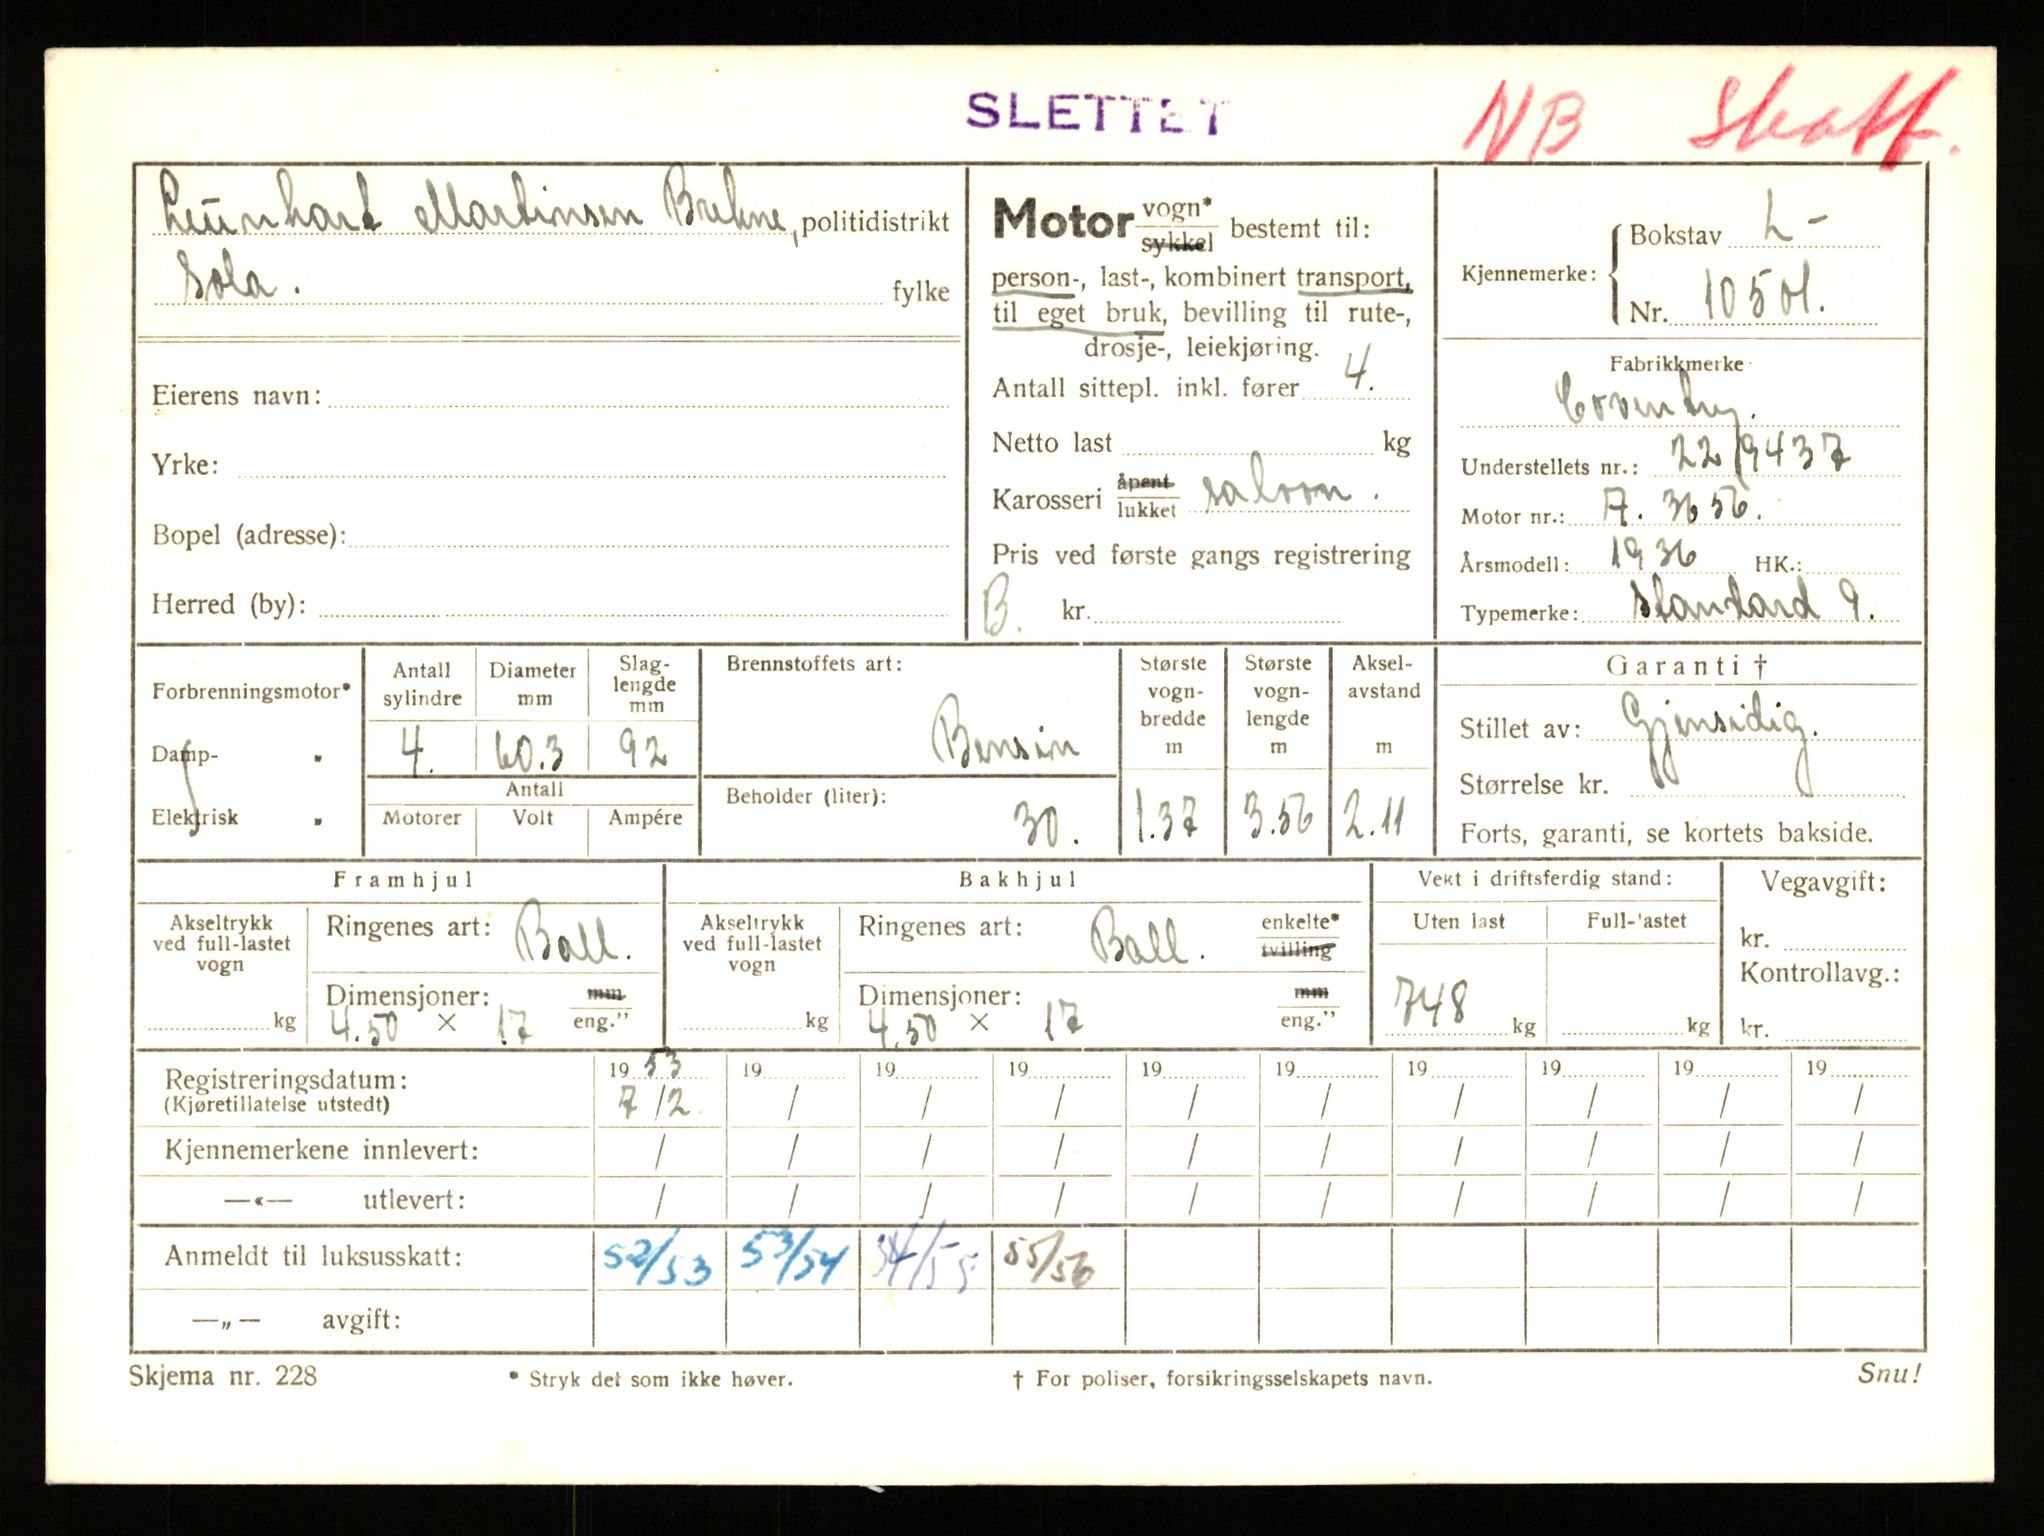 SLETTET
NB Skatt.
Leonhard Martinsen Brekne, politidistrikt
Sola. fylke
Eierens navn:
Yrke:
Bopel (adresse):
Herred (by):
Motor vogn*
sykkel bestemt til:
person-, last-, kombinert transport,
til eget bruk, bevilling til rute-,
drosje-, leiekjøring.
Antall sittepl. inkl. fører 4.
Netto last kg
Karosseri åpent
lukket saloon.
Pris ved første gangs registrering
B. kr.
Kjennemerke: Bokstav L-
Nr. 10501.
Fabrikkmerke
Coventry.
Understellets nr.: 22/9437
Motor nr.: A. 3656.
Årsmodell: 1936 HK.:
Typemerke: Standard 9.
Forbrenningsmotor*
Damp- "
Elektrisk "
Antall sylindre 4.
Diameter mm 60.3
Slag-lengde mm 92
Antall
Motorer Volt Ampére
Brennstoffets art:
Bensin
Beholder (liter):
30.
Største vogn-bredde m 1.37
Største vogn-lengde m 3.56
Aksel-avstand m 2.11
Garanti †
Stillet av: Gjensidig.
Størrelse kr.
Forts, garanti, se kortets bakside.
Framhjul
Akseltrykk
ved full-lastet
vogn
kg
Ringenes art: Ball.
Dimensjoner: mm
4.50 × 17 eng."
Bakhjul
Akseltrykk
ved full-lastet
vogn
kg
Ringenes art: Ball. enkelte*
tvilling
Dimensjoner: mm
4.50 × 17 eng."
Vekt i driftsferdig stand:
Uten last Full-'astet
748 kg kg
Vegavgift:
kr.
Kontrollavg.:
kr.
Registreringsdatum: 19 53 19 19 19 19 19 19 19 19 19
(Kjøretillatelse utstedt) 7/2. / / / / / / / / /
Kjennemerkene innlevert: / / / / / / / / / /
—«— utlevert: / / / / / / / / / /
Anmeldt til luksusskatt: 52/53 53/54 54/55 55/56
—„— avgift:
Skjema nr. 228 * Stryk det som ikke høver. † For poliser, forsikringsselskapets navn. Snu!